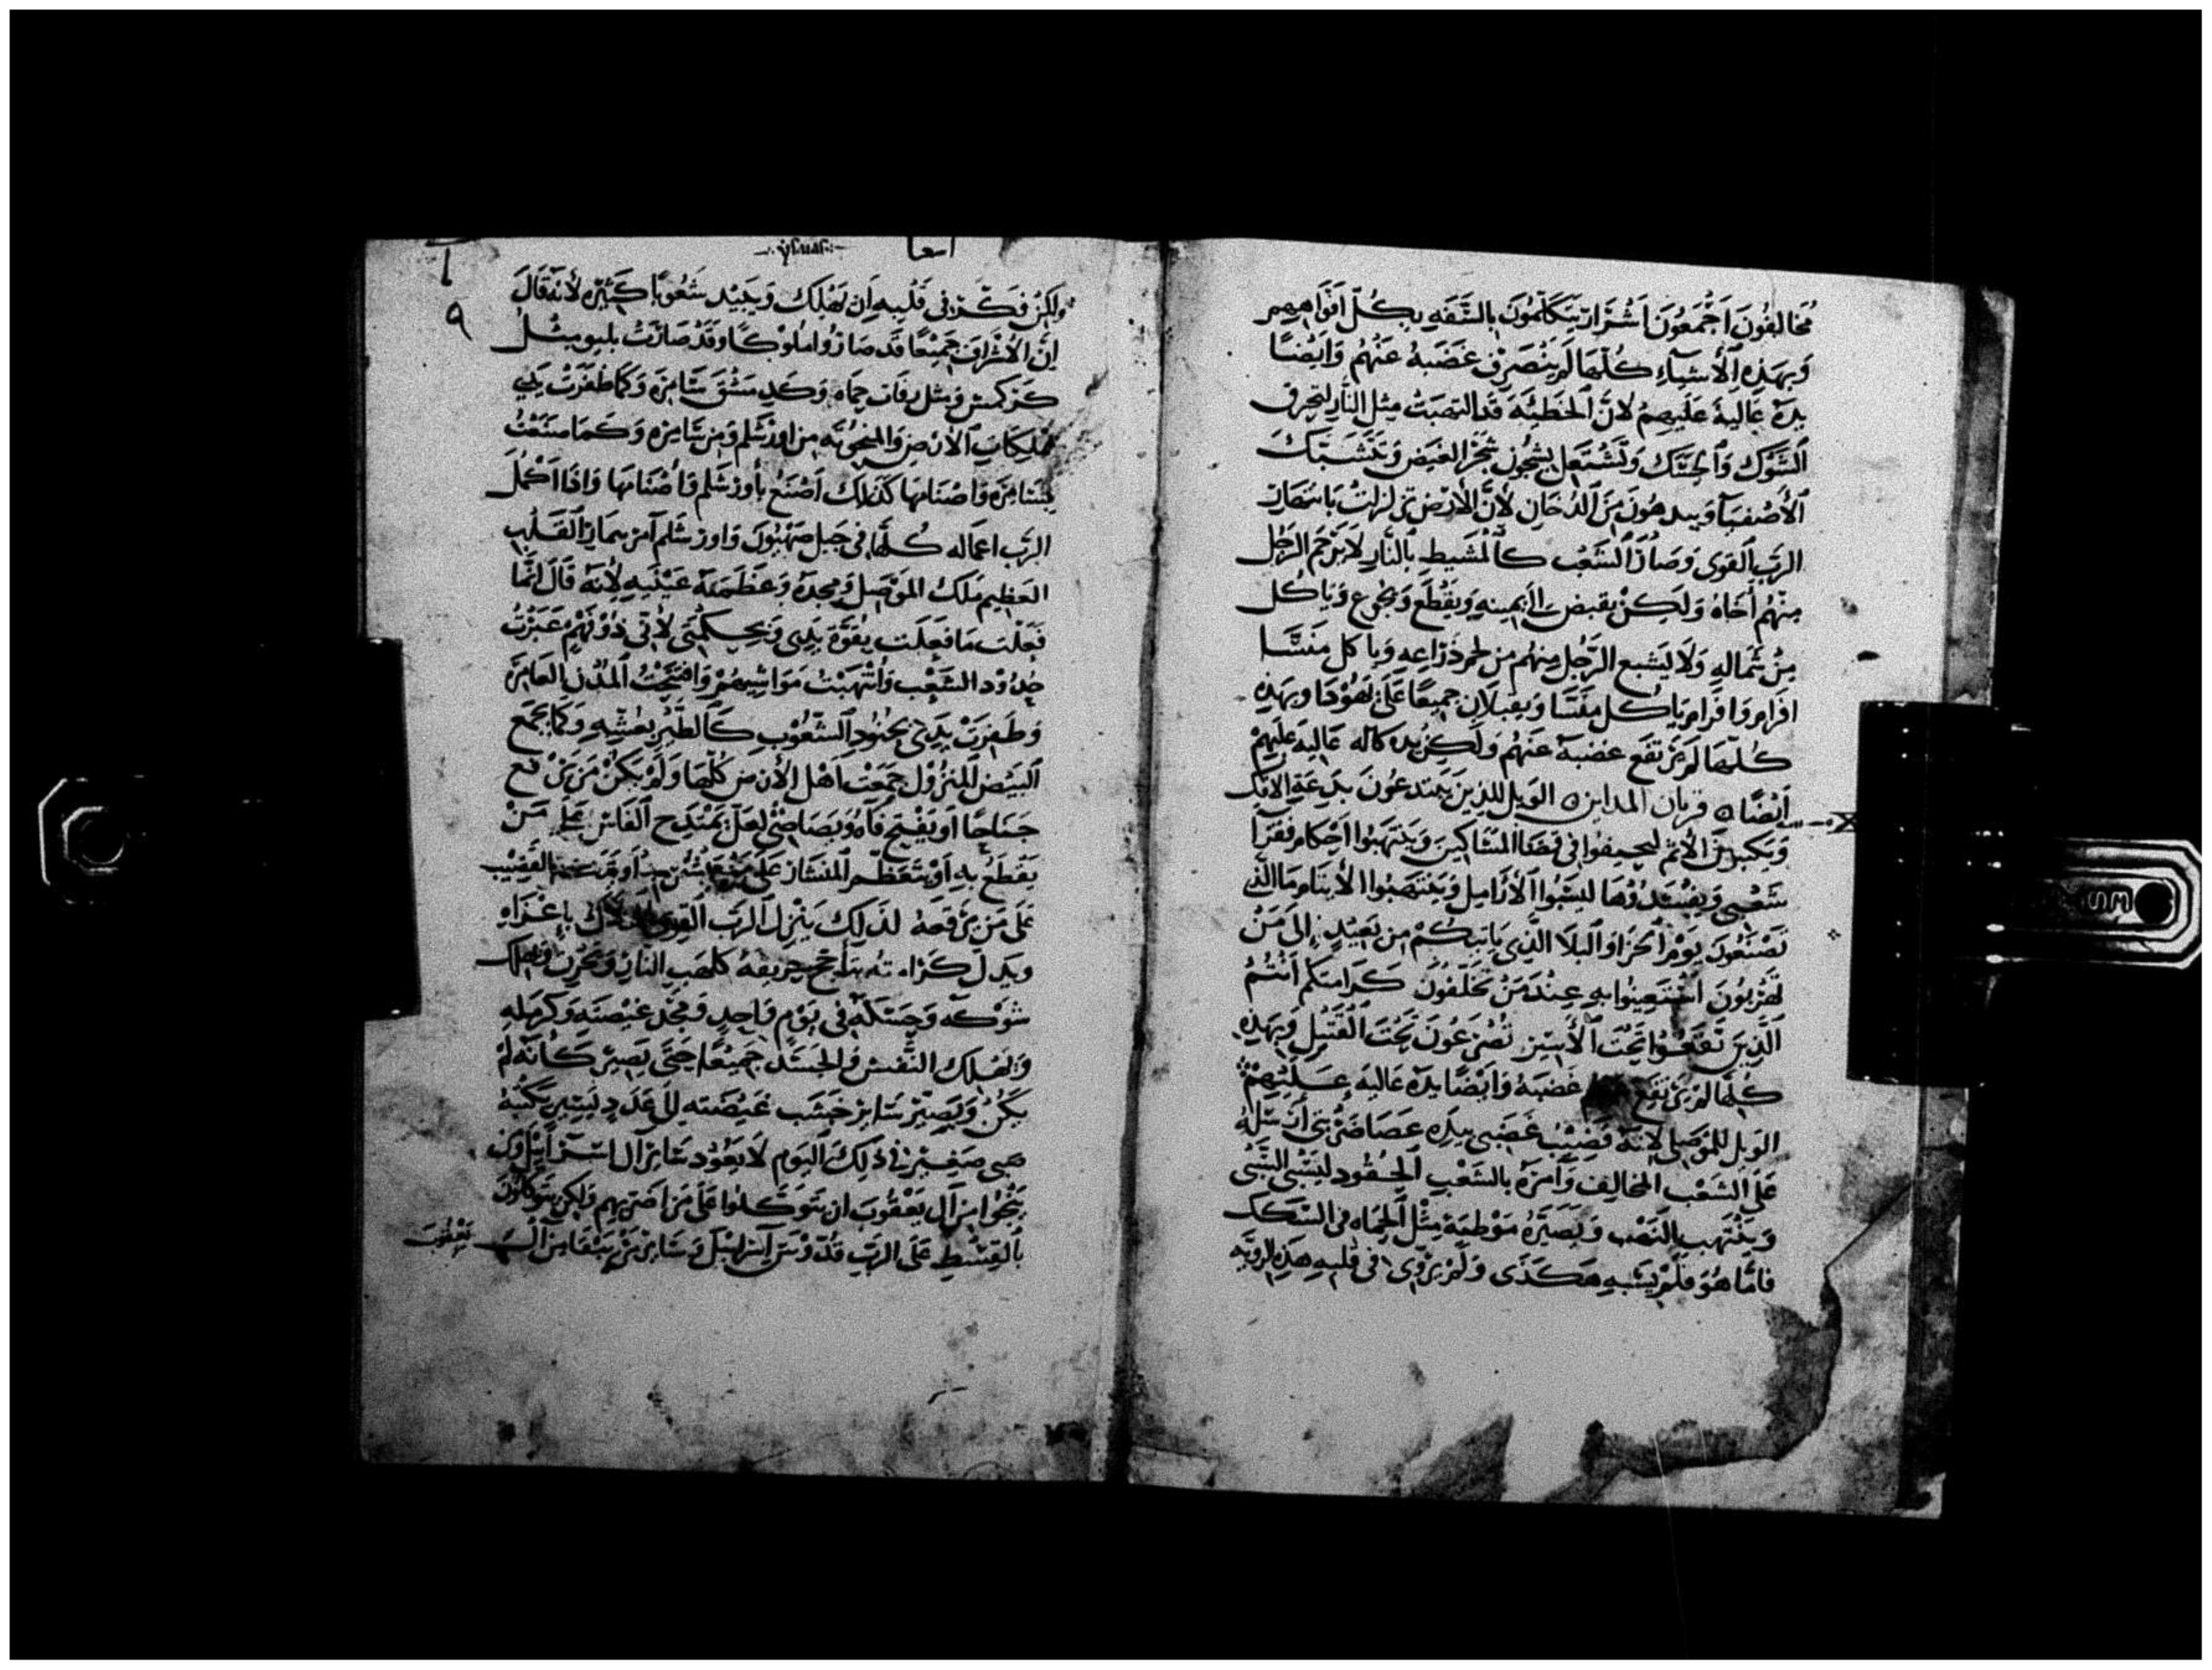 مخالفون اجمعون اشرار يتكلمون بالسفه بكل افواههم
وبهذه الأشياء كلها لم ينصرف غضبه عنهم وايضا
يده عالية عليهم لان الخطيئة قد التهبت مثل النار لتحرق
الشوك والحسك وتشتعل بشجون شجر الغيض وتتشبك
الأصفيا ويدهون من الدخان لأن الأرض تزلزلت بانتهار
الرب القوى وصار الشعب كالمشيط بالنار لا يرحم الرجل
منهم أخاه ولكن يقبض الى يمينه ويقطع ويجوع وياكل
من شماله ولا يشبع الرجل منهم من لحم ذراعه وياكل منسا
افرام وافرام ياكل منسا ويقبلان جميعا على يهودا وبهذه
كلها لم يرتفع غضبه عنهم ولكن يده كاله عاليه عليهم
أيضا ۞ قربان المداين ۞ الويل للذين يبتدعون بدعة الافك
ويكتبون الأثم ليحيفوا في قضا المساكين وينتهبوا احكام فقرا
شعبي ويفسدوها ليسبوا الأرامل وينتهبوا الأيتام ما الذي
تصنعون يوم الحزا والبلا الذي ياتيكم من بعيد الى من
تهربون استعينوا به عند من تخلفون كرامتكم انتم
الذين تقعوا تحت الأسير تصرعون تحت القتيل وبهذه
كلها لم يرتفع غضبه وايضا يده عاليه عليهم
الويل للموصلى لانه قضيب غضبي بيده عصا ضربتي أرسله
على الشعب المخالف وآمره بالشعب الحقود ليسبي السبي
وينتهب النهب ويصيره موطية مثل الحماه في السكك
فاما هو فلم يشبه هكذى ولم يروى في قلبه هذه الرويه
اشعيا
٩
ولكن فكر في قلبه ان يهلك ويبيد شعوبا كثيره لأنه قال
إن الأشراف جميعا قد صاروا ملوكا وقد صارت بليو مثل
كركمش ومثل رفاف حماه وكدمشق سامره وكما ظفرت يدي
بملكات الأرض والمنحوته من اورشلم ومن سامره وكما صنعت
بسامره واصنامها كذلك اصنع بأورشلم وأصنامها واذا اكمل
الرب اعماله كلها في جبل صهيون واورشلم آمر بمار القلب
العظيم ملك الموصل ومجده وعظمة عينيه لأنه قال انما
فعلت ما فعلت بقوة يدى وبحكمتى لأني ذو فهم عبرت
حدود الشعب وانتهبت مواشيهم وافتتحت المدن العامره
وظفرت يدي بجنود الشعوب كالطير بعشه وكما يجمع
البيض المنزول جمعت اهل الأرض كلها ولم يكن من يرفع
جناحا او يفتح فاه ويصاصئ لعل يمتدح الفاس على من
يقطع به او يتعظم المنشار على من او القضيب
على من يرفعه لذلك ينزل الرب القوى باعزاه
وبدل كرامته يتأجج حريقه كلهب النار ويحرق ويهلك
شوكه وحسكه في يوم واحد ومجد غيضته وكرمله
ويهلك النفس والجسد جميعا حتى يصير كأنه لم
يكن ويصير ساير خشب غيضته الى عدد ليسير يكتبه
صبي صغير في ذلك اليوم لا يعود ساير آل اسرائيل ومن
نجوا من آل يعقوب ان يتوكلوا على من اضربهم ولكن يتوكلون
بالقسط على الرب قدوس اسرائيل وساير من يبقا من آل
يعقوب